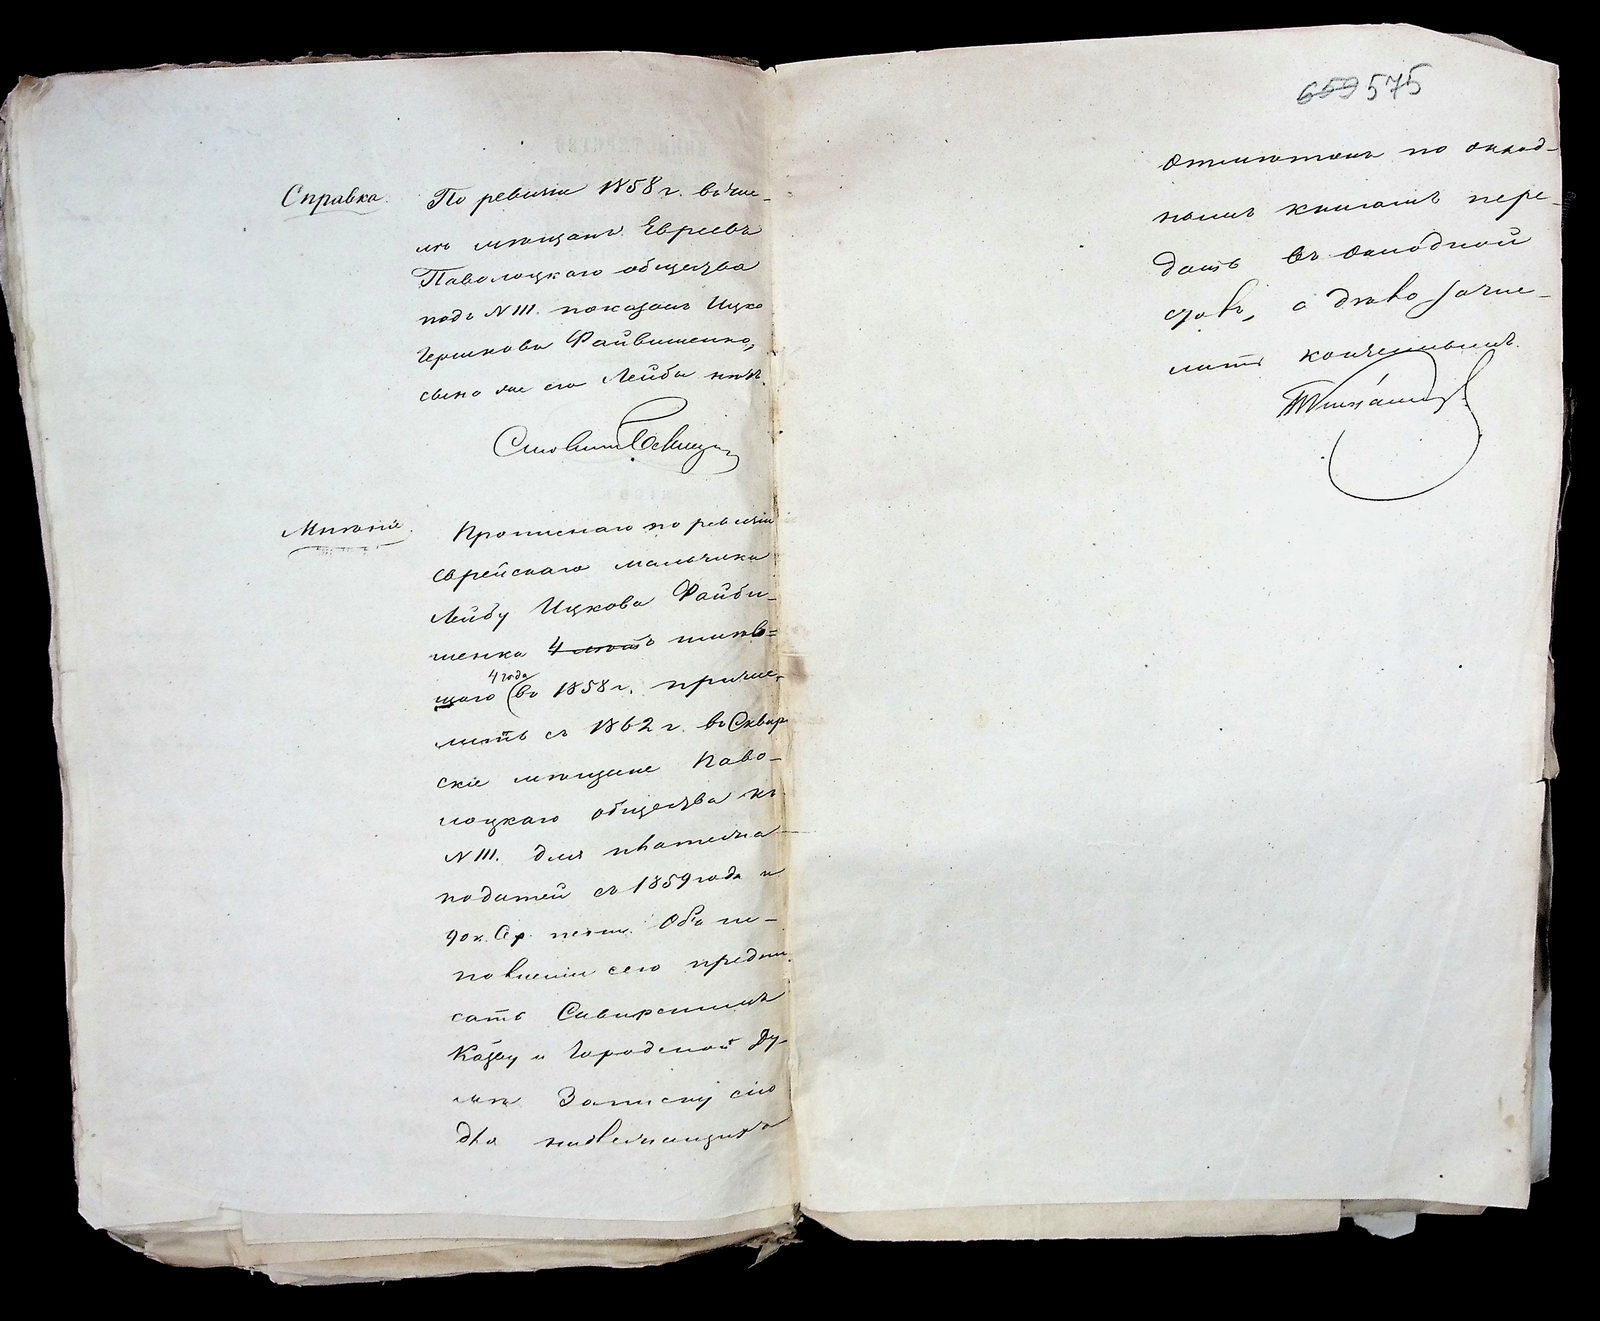 Справка.
По ревизіи 1858 г. въ чис-
лѣ мѣщанъ Евреевъ
Паволоцкаго общества
подъ № 111. показанъ Ицко
Гершковъ Файвишенко,
сына же его Лейбы нѣтъ.
Мнѣніе.
Прописнаго по ревизіи
еврейскаго мальчика
Лейбу Ицкова Файби-
шенка 4 лѣтъ имѣв-
4 года
щаго въ 1858 г. причис-
лить съ 1862 г. въ Сквир-
скіе мѣщане Паво-
лоцкаго общества къ
№ 111. для платежа
податей съ 1859 года и
90 к. Сер. пени. Объ ис-
полненіи сего предпи-
сать Сквирскимъ
Казну и Городской Ду-
мѣ Записку сію
для надлежащихъ
659 575
отмѣтокъ по оклад-
нымъ книгамъ пере-
дать въ окладной
столъ, а дѣло зачис-
лить конченнымъ.